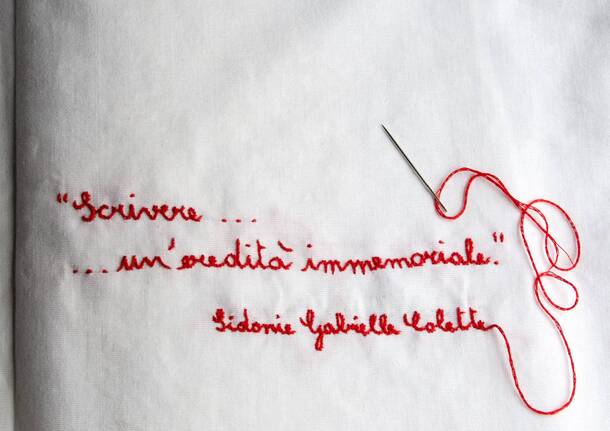 "Scrivere ...
... un'eredità immemoriale."
Sidonie Gabrielle Colette